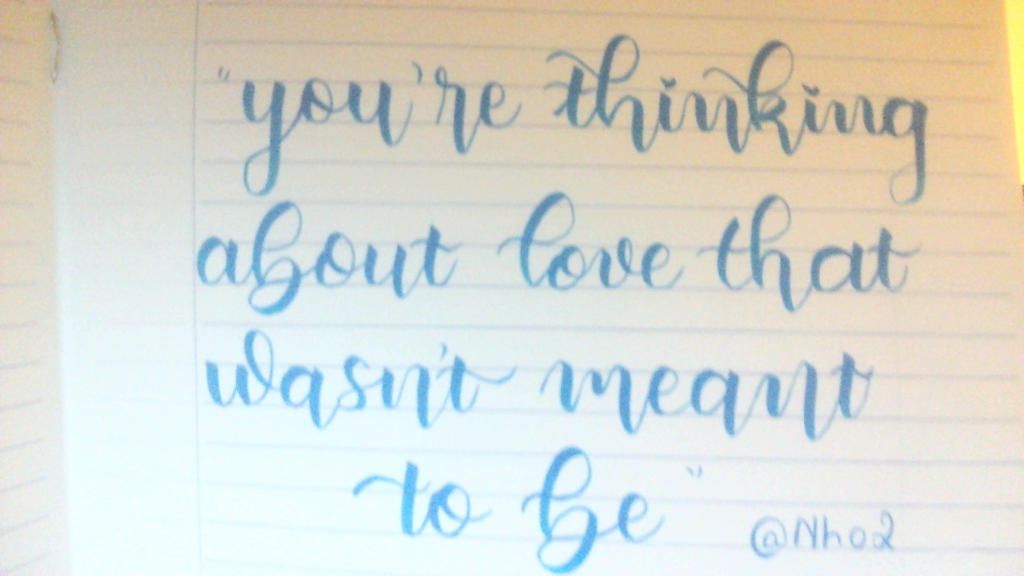 "you're thinking
about love that
wasn't meant
to be"
@Nho2